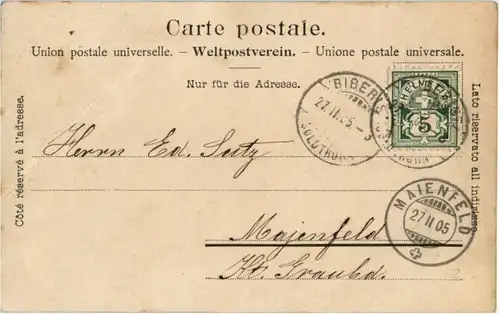 Carte postale.
Union postale universelle. – Weltpostverein. – Unione postale universale.
Nur für die Adresse.
Côté réservé à l'adresse.
Lato riservato all indirizzo.
BIBERIST
27.II.05.-3
(SOLOTHURN)
HELVETIA
5
Herrn Ed. Lutz
MAIENFELD
27 II 05
Majenfeld
Kt. Graubd.